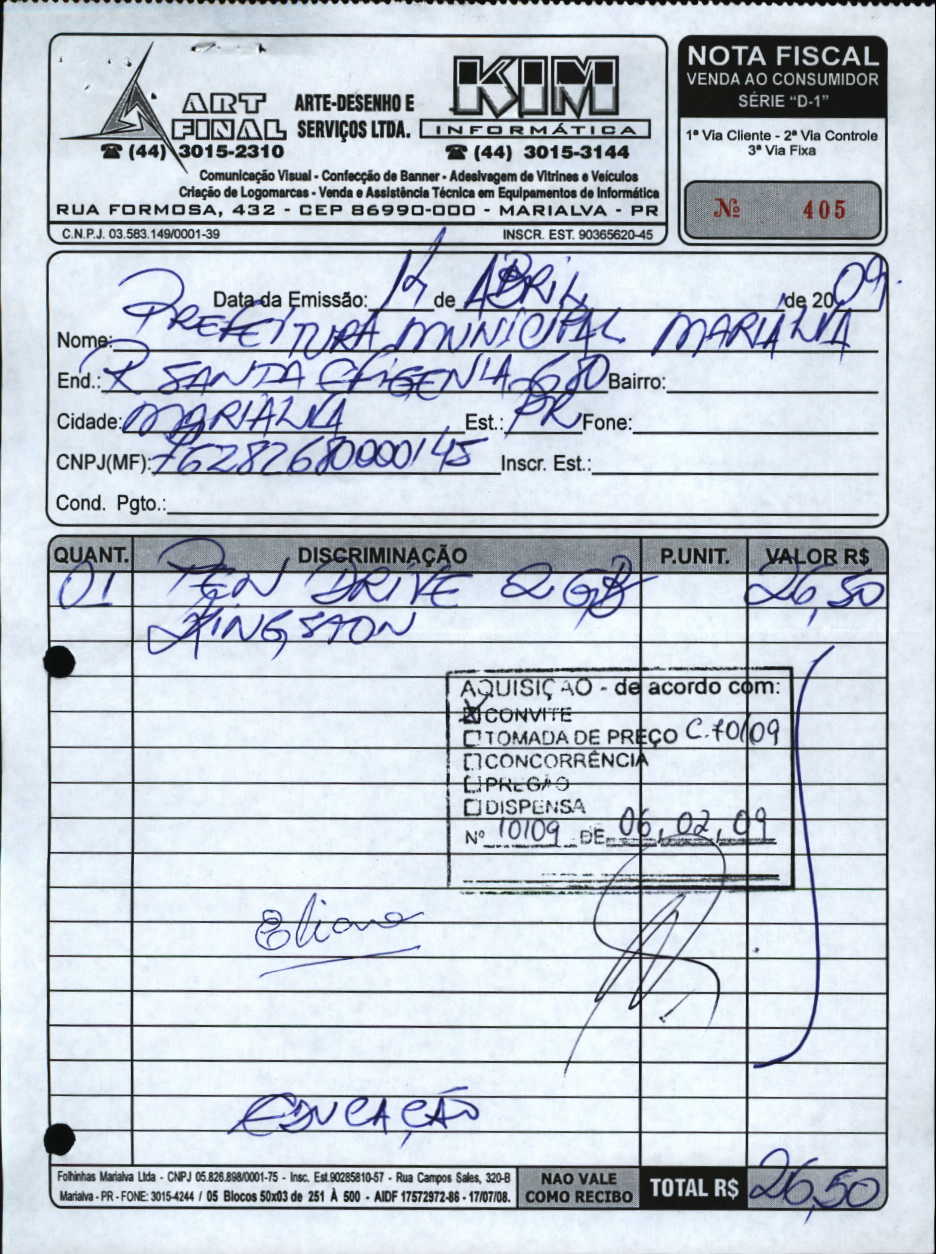 ART FINAL
ARTE-DESENHO E SERVIÇOS LTDA.
KIM INFORMÁTICA
☎ (44) 3015-2310
☎ (44) 3015-3144
Comunicação Visual - Confecção de Banner - Adesivagem de Vitrines e Veículos
Criação de Logomarcas - Venda e Assistência Técnica em Equipamentos de Informática
RUA FORMOSA, 432 - CEP 86990-000 - MARIALVA - PR
C.N.P.J. 03.583.149/0001-39 INSCR. EST. 90365620-45
NOTA FISCAL
VENDA AO CONSUMIDOR
SÉRIE "D-1"
1ª Via Cliente - 2ª Via Controle
3ª Via Fixa
Nº 405
Data da Emissão: de ABRIL de 2009.
Nome: PREFEITURA MUNICIPAL MARIALVA
End.: R SANTA EFIGENIA 680 Bairro:
Cidade: MARIALVA Est.: PR Fone:
CNPJ(MF): 76282680000145 Inscr. Est.:
Cond. Pgto.:
QUANT. DISCRIMINAÇÃO P.UNIT. VALOR R$
01 PEN DRIVE 2 GB 26,50
KINGSTON
AQUISIÇÃO - de acordo com:
CONVITE
TOMADA DE PREÇO C.10/09
CONCORRÊNCIA
PREGÃO
DISPENSA
Nº 10109 DE 06, 02, 09
Eliane
EDUCAÇÃO
Folhinhas Marialva Ltda - CNPJ 05.826.898/0001-75 - Insc. Est.90285810-57 - Rua Campos Sales, 320-B
Marialva - PR - FONE: 3015-4244 / 05 Blocos 50x03 de 251 À 500 - AIDF 17572972-86 - 17/07/08.
NAO VALE COMO RECIBO
TOTAL R$ 26,50